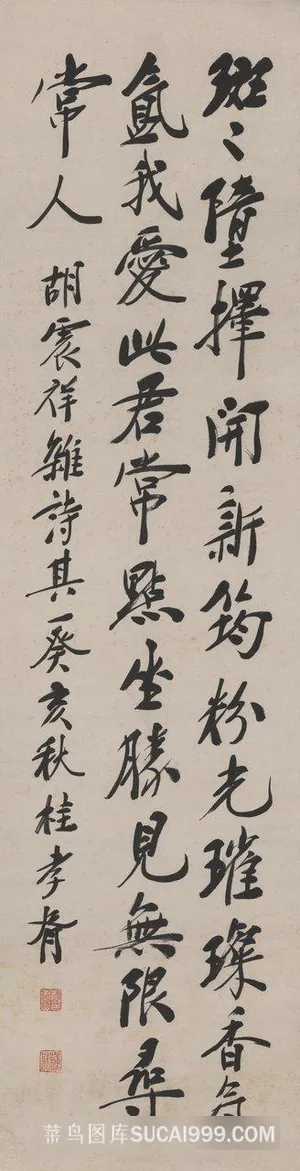 斑〻墮擇開新筠粉光璀璨香氛
氳我愛此君常默坐勝見無限尋
常人 胡震祥雜詩其一癸亥秋桂孝胥
菜鸟图库SUCAI999.COM